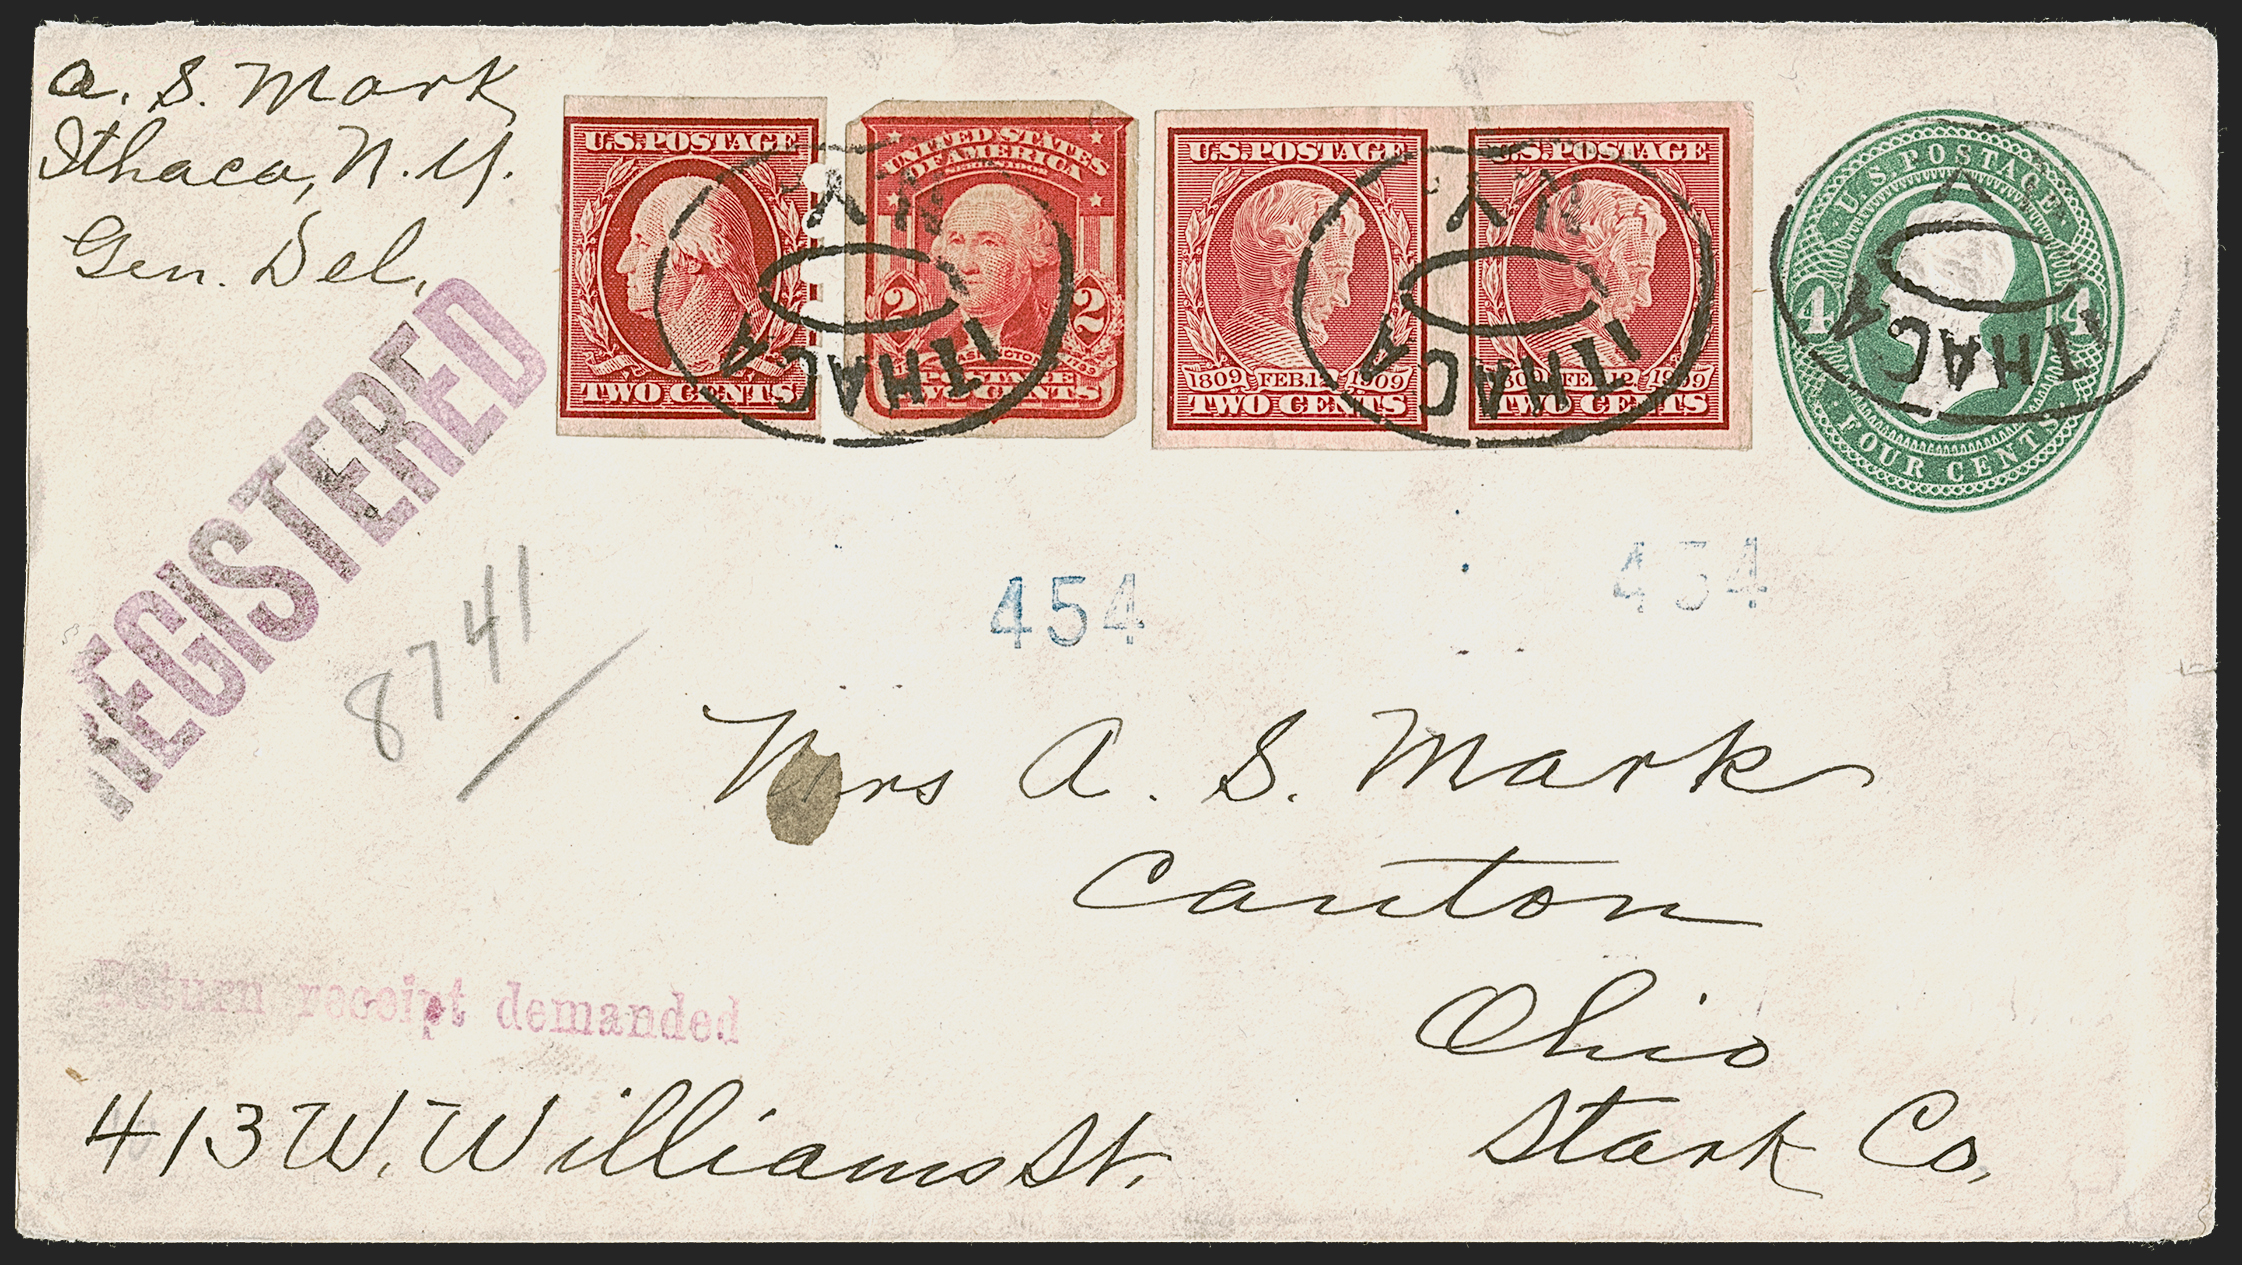 A. S. Mark
Ithaca, N. Y.
Gen. Del.
U.S. POSTAGE
TWO CENTS
UNITED STATES
OF AMERICA
2 2
WASHINGTON
POSTAGE
TWO CENTS
U.S. POSTAGE
1809 FEB. 12 1909
TWO CENTS
U.S. POSTAGE
1809 FEB. 12 1909
TWO CENTS
U.S. POSTAGE
4 4
FOUR CENTS
ITHACA N.Y.
ITHACA N.Y.
ITHACA
REGISTERED
8741
454
454
Mrs A. S. Mark
Canton
Ohio
Stark Co.
Return receipt demanded
413 W. Williams St.